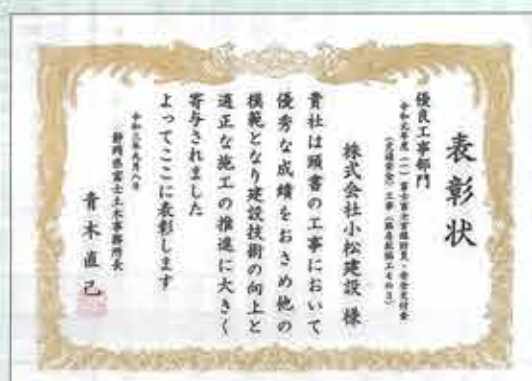 表彰状
優良工事部門
令和元年度(一)富士富士宮線防災・安全交付金
(交通安全)工事(路肩拡幅工その3)
株式会社小松建設 様
貴社は頭書の工事において
優秀な成績をおさめ他の
模範となり建設技術の向上と
適正な施工の推進に大きく
寄与されました
よってここに表彰します
静岡県富士土木事務所長
青木直己